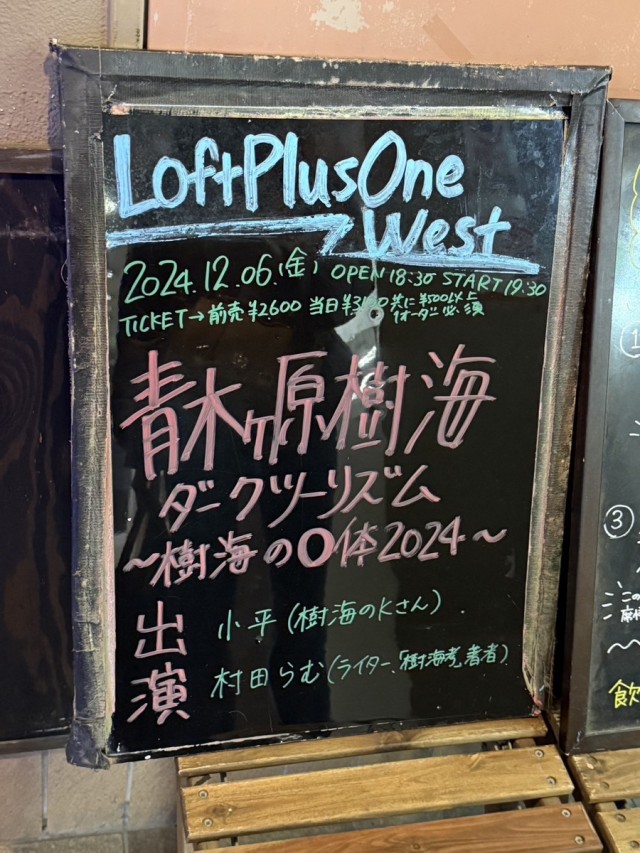 LoftPlusOne
West
2024.12.06.(金) OPEN 18:30 START 19:30
TICKET→前売¥2600 当日¥3100 共に¥500以上
1オーダー必須
青木ヶ原樹海
ダークツーリズム
～樹海の〇体2024～
出演
小平(樹海のKさん).
村田らむ(ライター、「樹海考」著者)
①
③
この
飲